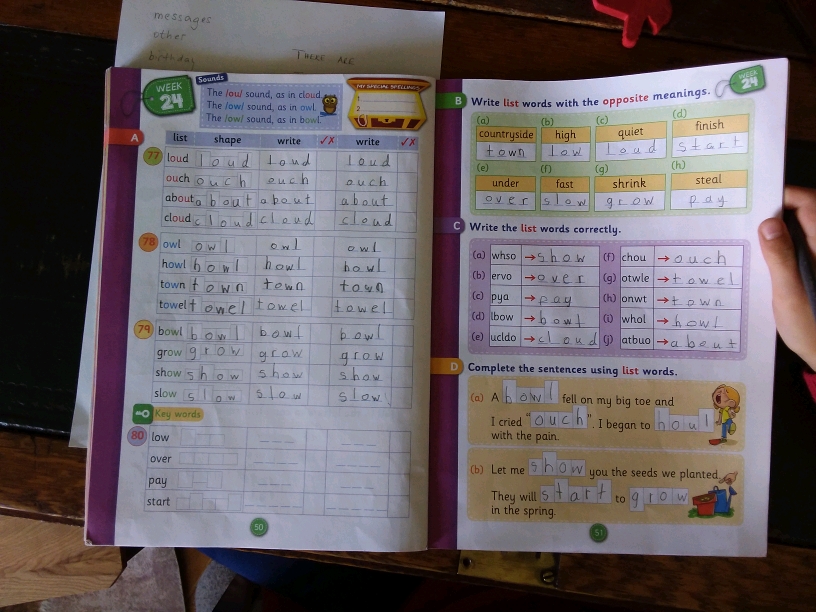 messages
other
birthday
THERE ARE
WEEK 24
Sounds
The /ou/ sound, as in cloud.
The /ow/ sound, as in owl.
The /ow/ sound, as in bowl.
MY SPECIAL SPELLINGS
1
2
A
list shape write ✓✗ write ✓✗
77
loud loud loud loud
ouch ouch ouch ouch
about about about about
cloud cloud cloud cloud
78
owl owl owl owl
howl howl howl howl
town town town town
towel towel towel towel
79
bowl bowl bowl bowl
grow grow grow grow
show show show show
slow slow slow slow
Key words
80
low
over
pay
start
50
WEEK 24
B Write list words with the opposite meanings.
(a) (b) (c) (d)
countryside high quiet finish
town low loud start
(e) (f) (g) (h)
under fast shrink steal
over slow grow pay
C Write the list words correctly.
(a) whso → show (f) chou → ouch
(b) ervo → over (g) otwle → towel
(c) pya → pay (h) onwt → town
(d) lbow → bowl (i) whol → howl
(e) ucldo → cloud (j) atbuo → about
D Complete the sentences using list words.
(a) A bowl fell on my big toe and
I cried "ouch". I began to howl
with the pain.
(b) Let me show you the seeds we planted.
They will start to grow
in the spring.
51